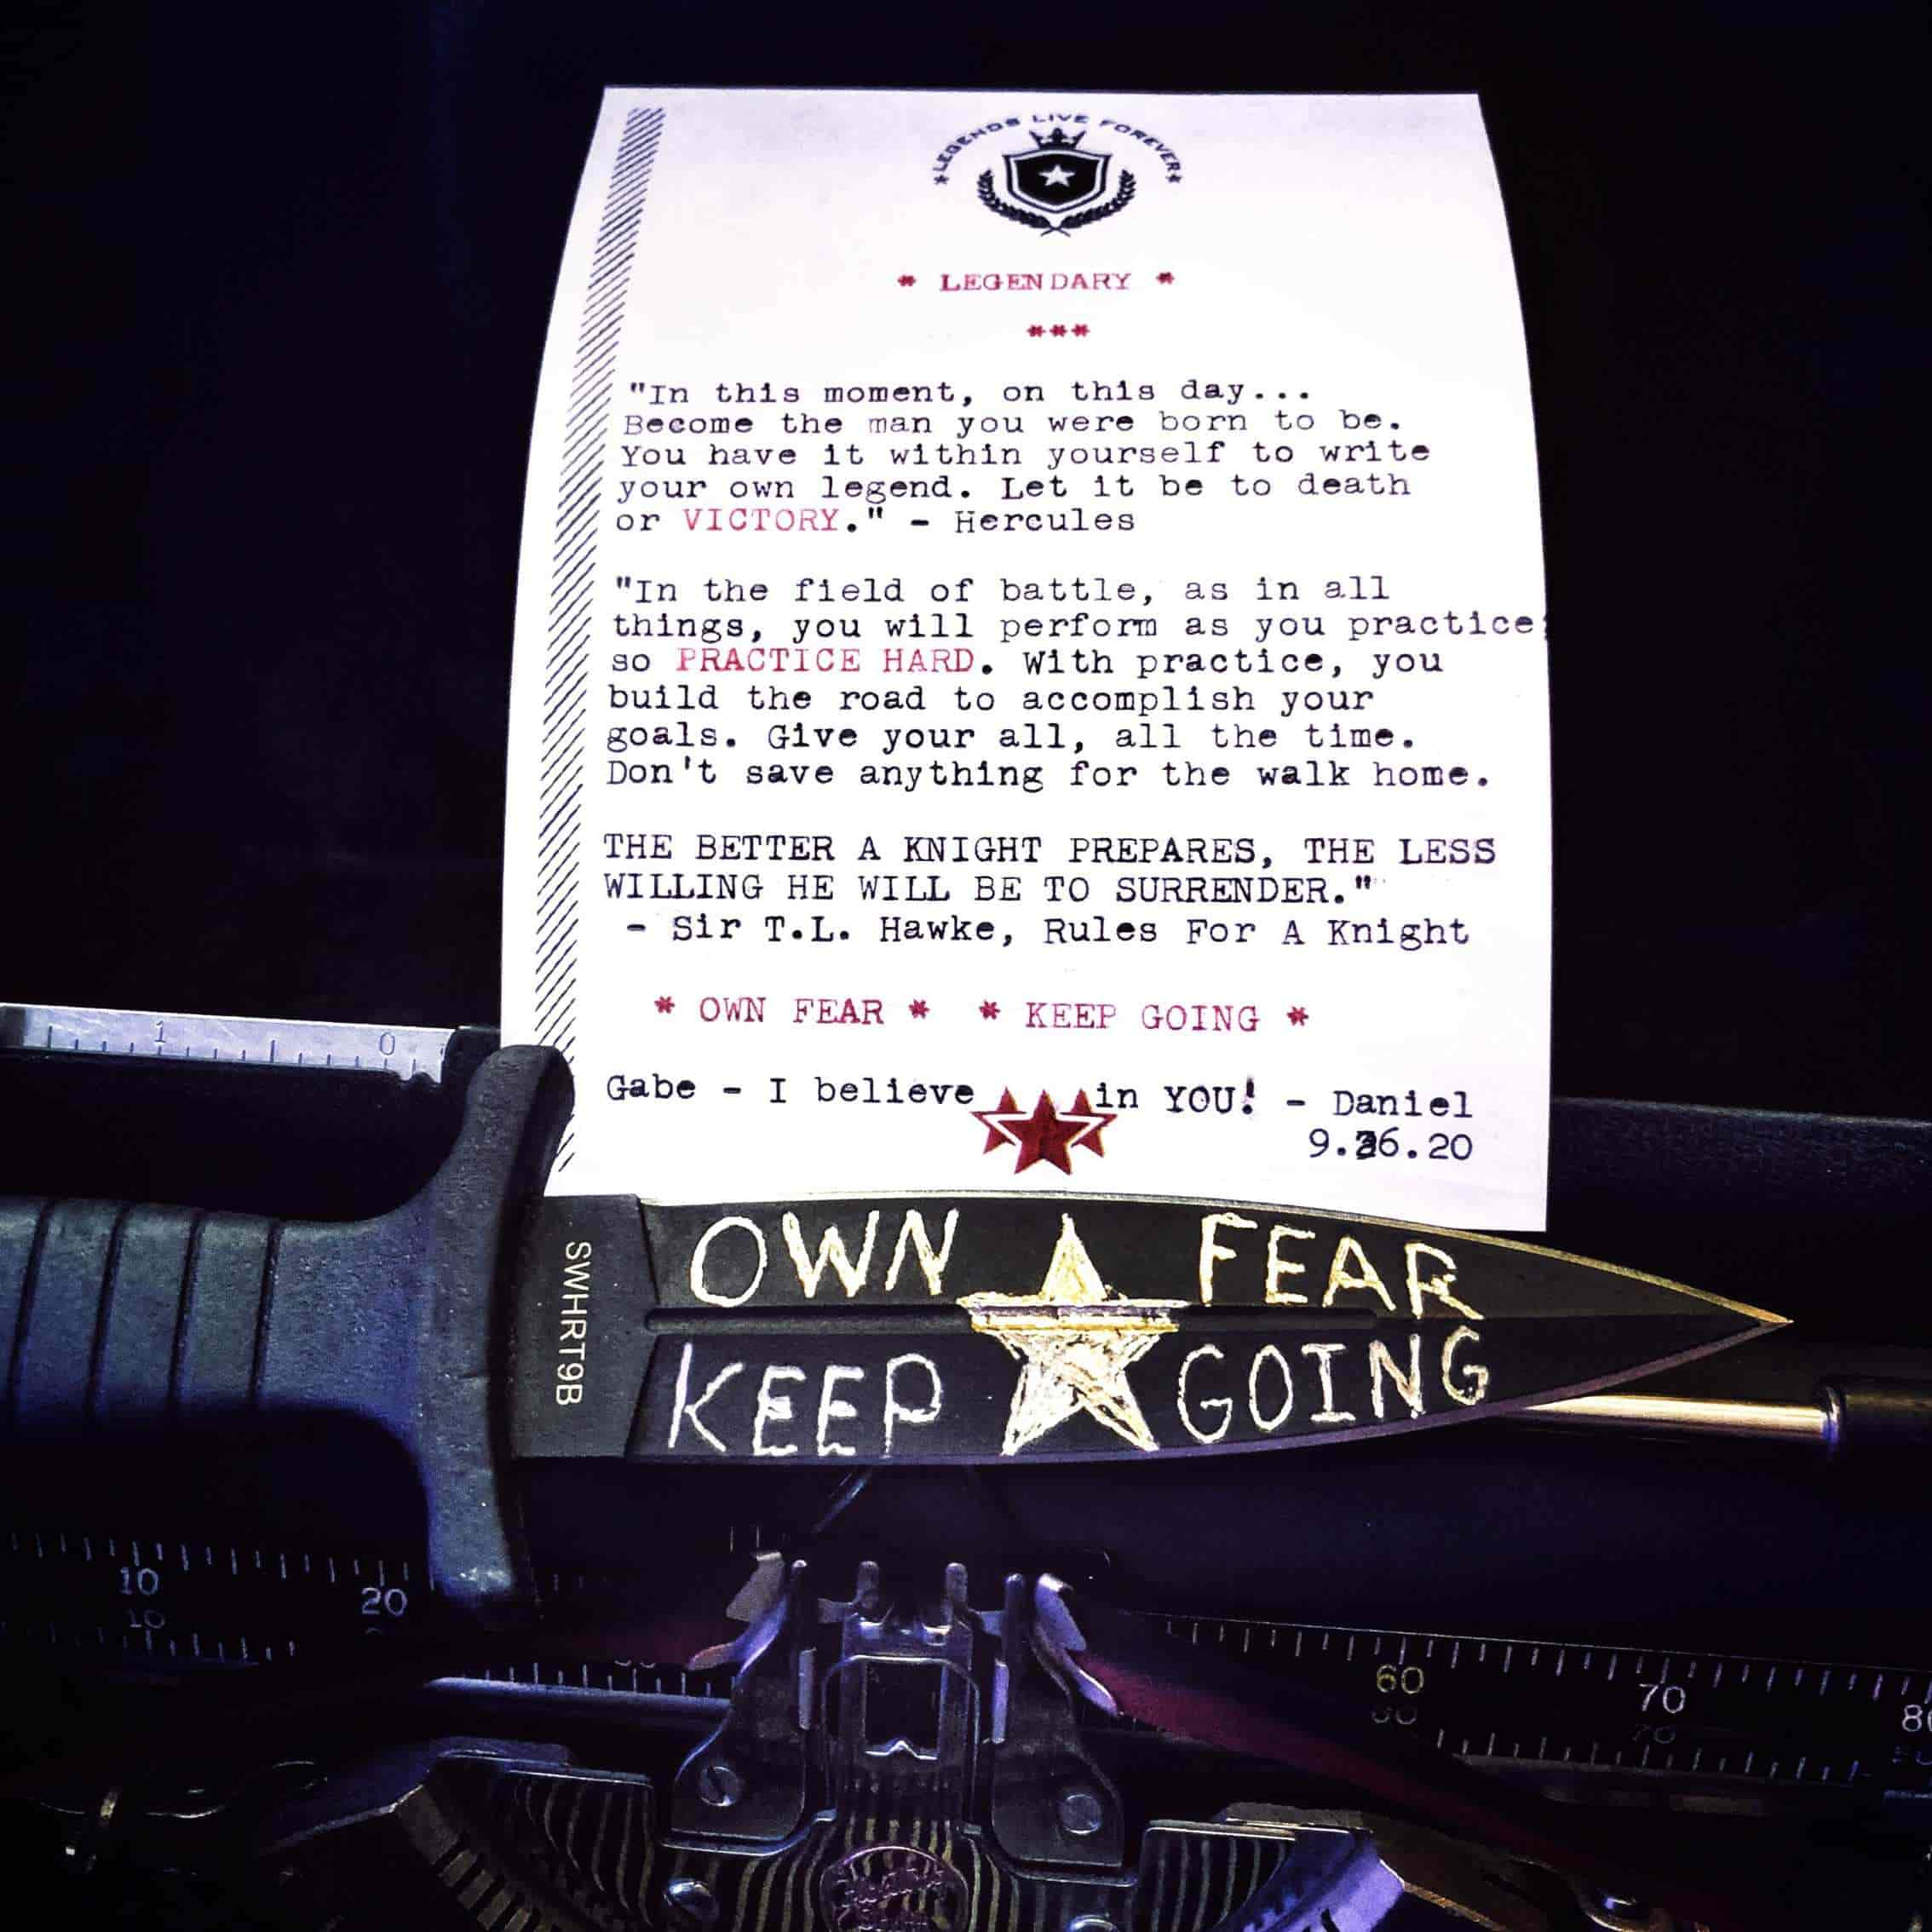 *LEGENDS LIVE FOREVER*
* LEGENDARY *
***
"In this moment, on this day...
Become the man you were born to be.
You have it within yourself to write
your own legend. Let it be to death
or VICTORY." - Hercules
"In the field of battle, as in all
things, you will perform as you practice;
so PRACTICE HARD. With practice, you
build the road to accomplish your
goals. Give your all, all the time.
Don't save anything for the walk home.
THE BETTER A KNIGHT PREPARES, THE LESS
WILLING HE WILL BE TO SURRENDER."
- Sir T.L. Hawke, Rules For A Knight
* OWN FEAR * * KEEP GOING *
Gabe - I believe in YOU! - Daniel
9.26.20
1 0
SWHRT9B
OWN FEAR
KEEP GOING
10 20 60 70 80
10 70